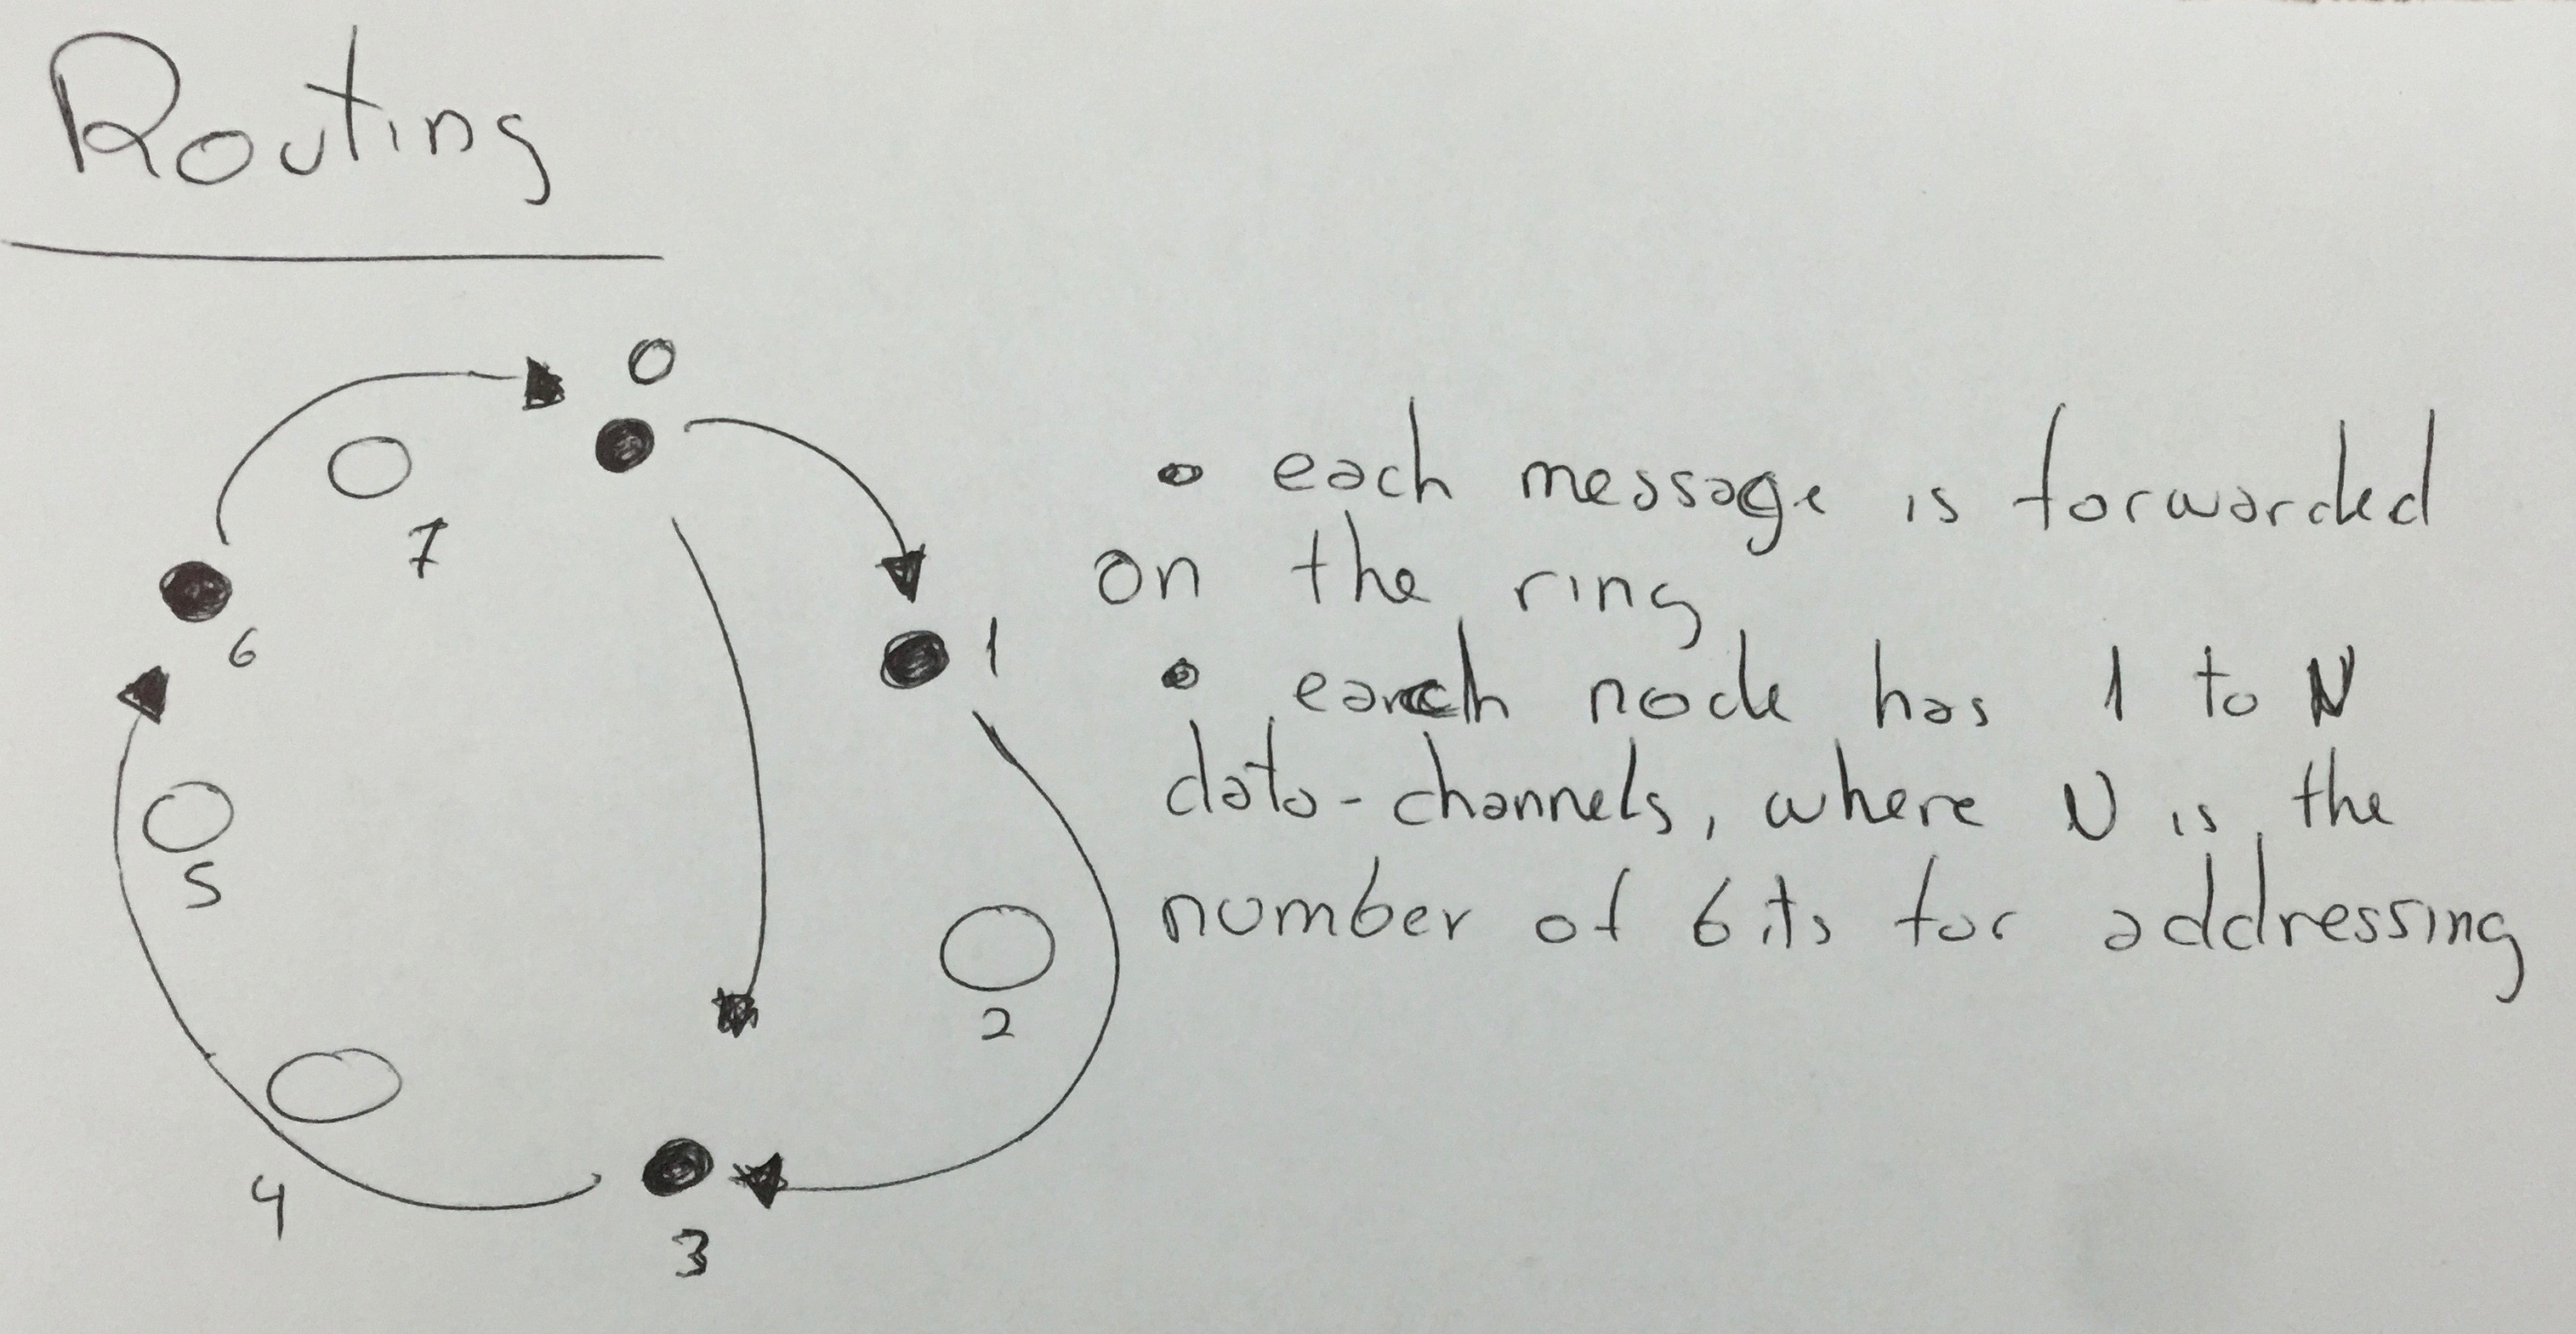 Routing
0
7
6
1
5
2
4
3
• each message is forwarded
on the ring
• each node has 1 to N
data-channels, where N is the
number of bits for addressing